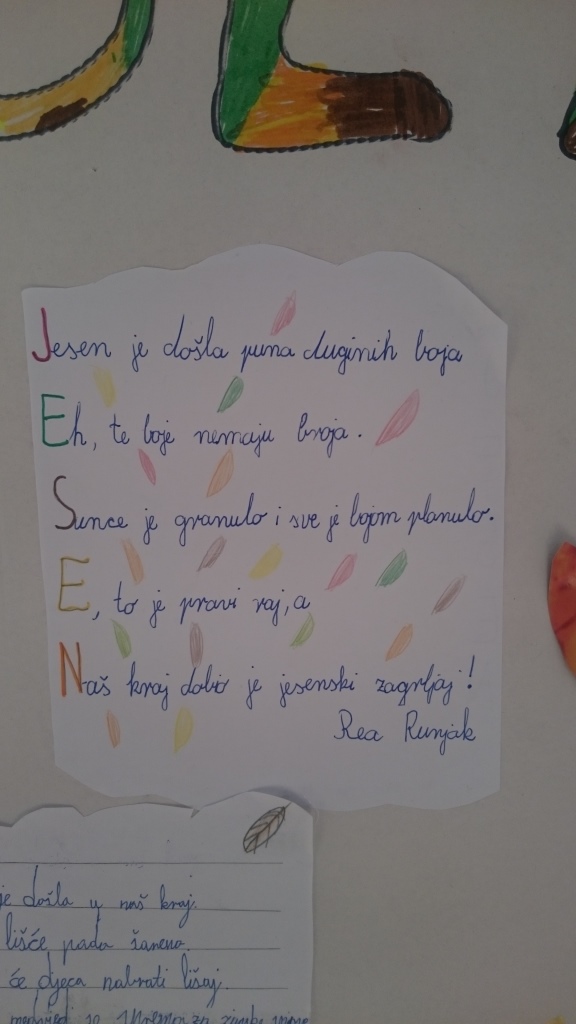 Jesen je došla puna duginih boja
Eh, te boje nemaju broja.
Sunce je granulo i sve je bojom planulo.
E, to je pravi raj, a
Naš kraj dobio je jesenski zagrljaj!
Rea Runjak
je došla u naš kraj.
lišće pada šareno.
će djeca nabrati lišaj.
medvjed